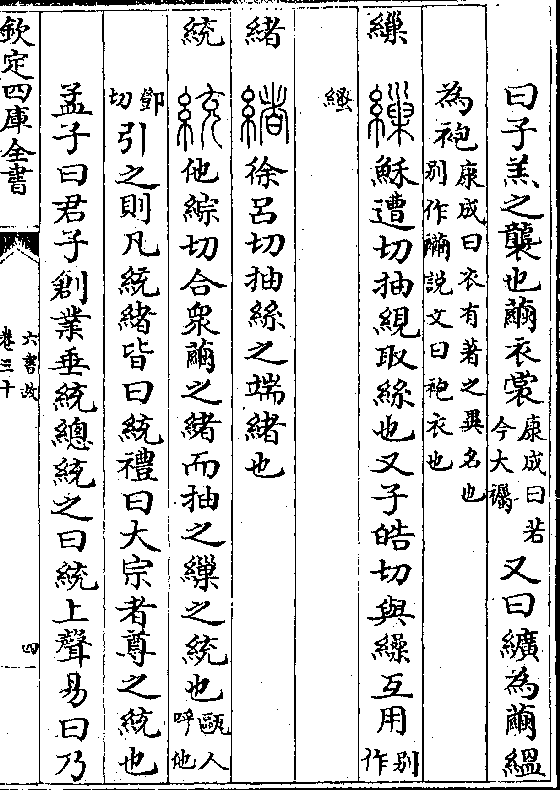 曰子羔之襲也繭衣裳康成曰若今大䙱又曰纊為繭緼
為袍康成曰衣有著之異名也别作䌺説文曰袍衣也
繅 繅穌遭切抽繭取絲也又子皓切與繰互用别作
緒 緒徐吕切抽絲之端緒也
統 統他綜切合衆繭之緒而抽之繅之統也甌人呼他
鄧切引之則凡統緒皆曰統禮曰大宗者尊之統也
孟子曰君子創業垂統總統之曰統上聲易曰乃
欽定四庫全書
六書故
卷三十
四